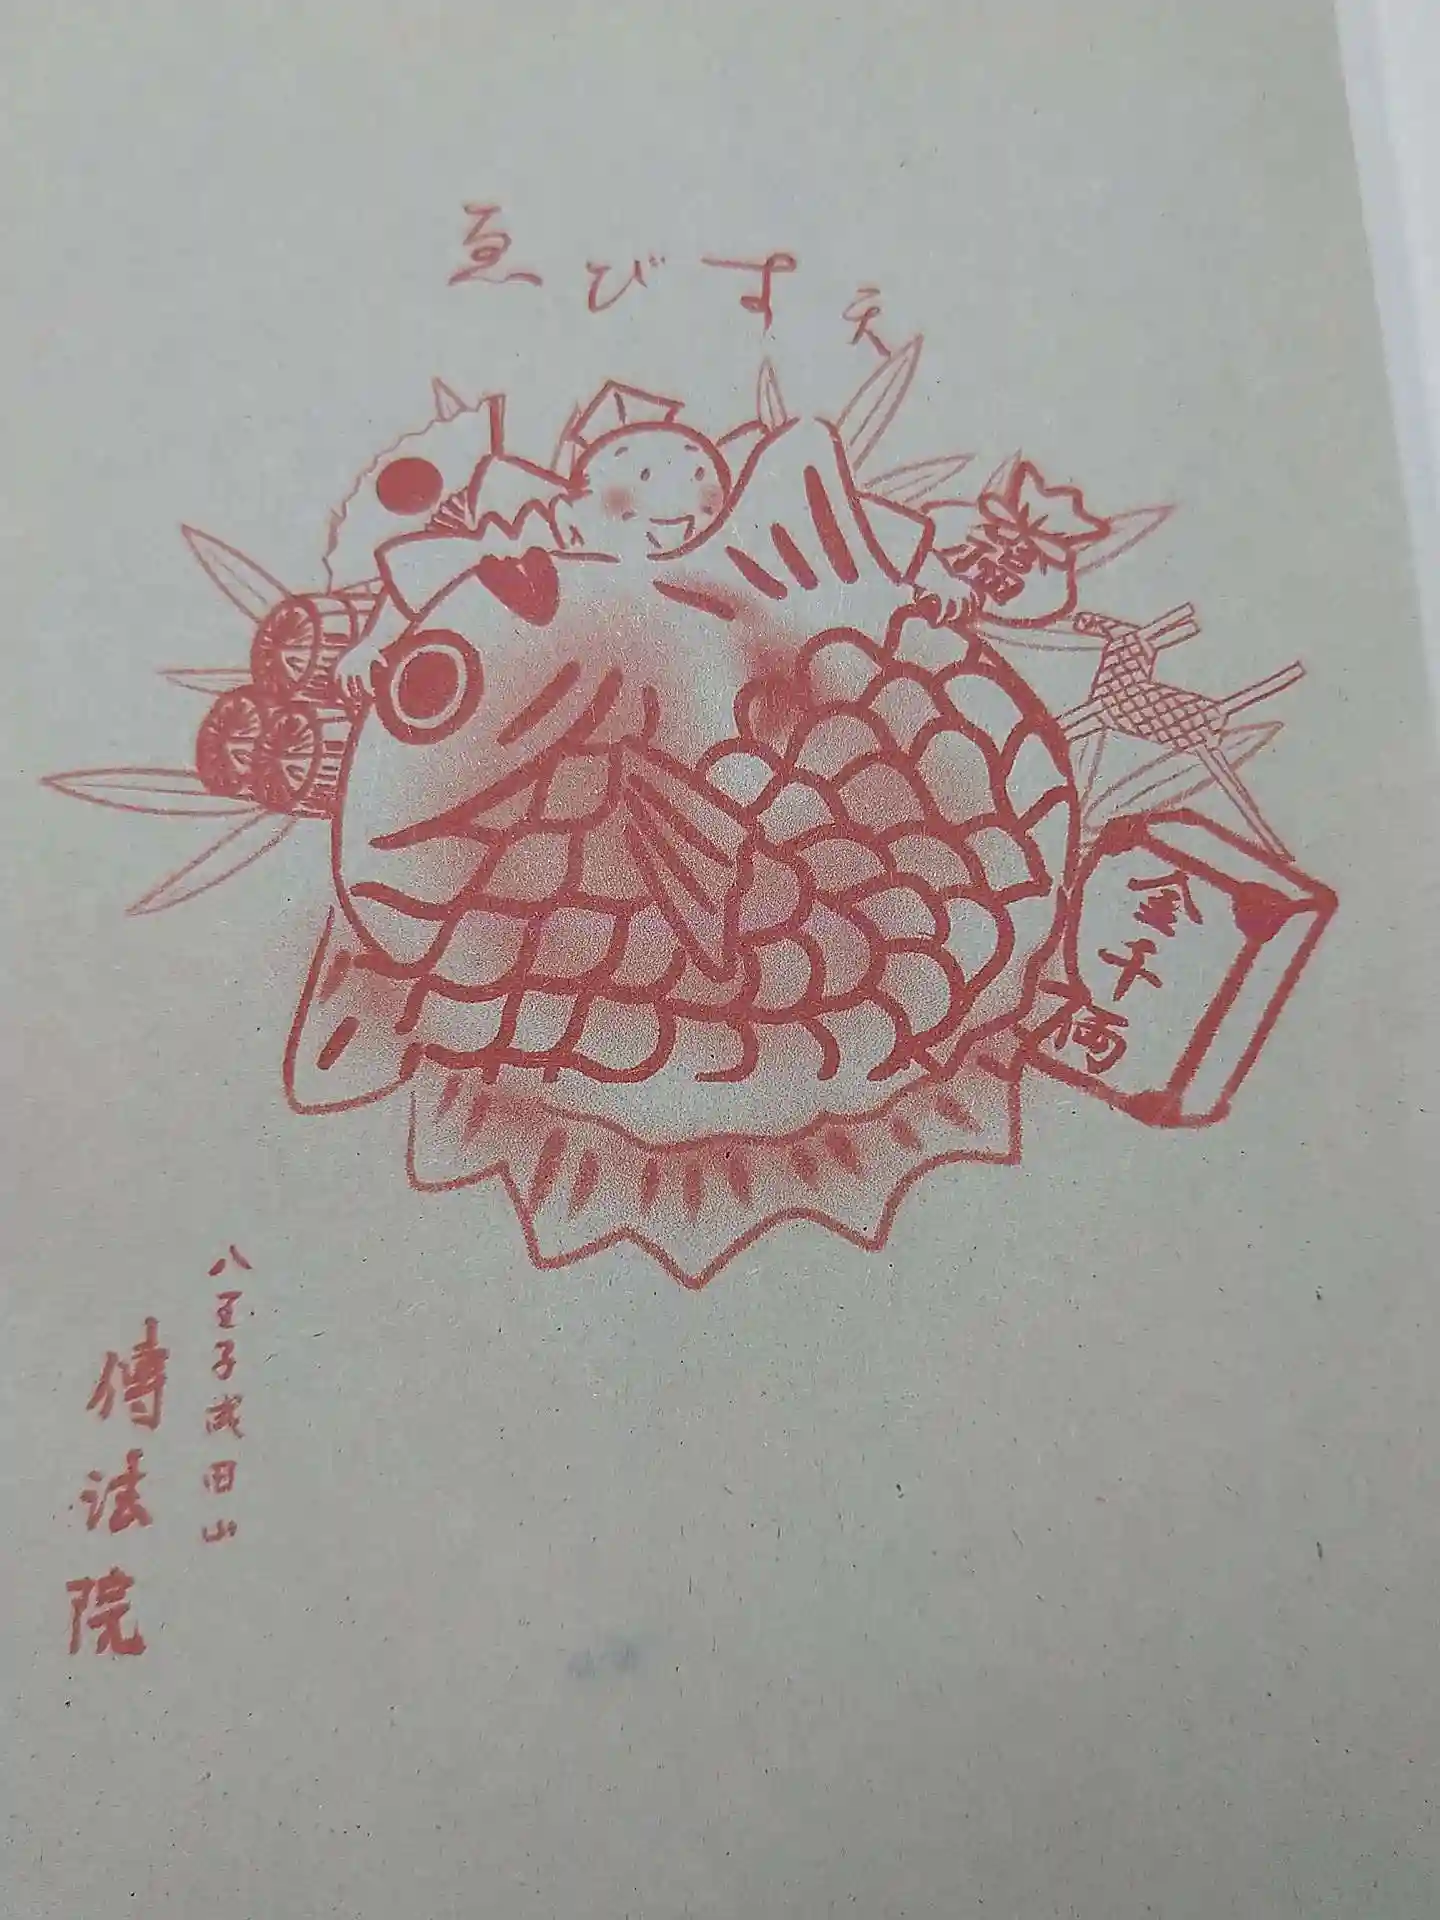 ゑびす天
福
金千両
八王子成田山
傳法院